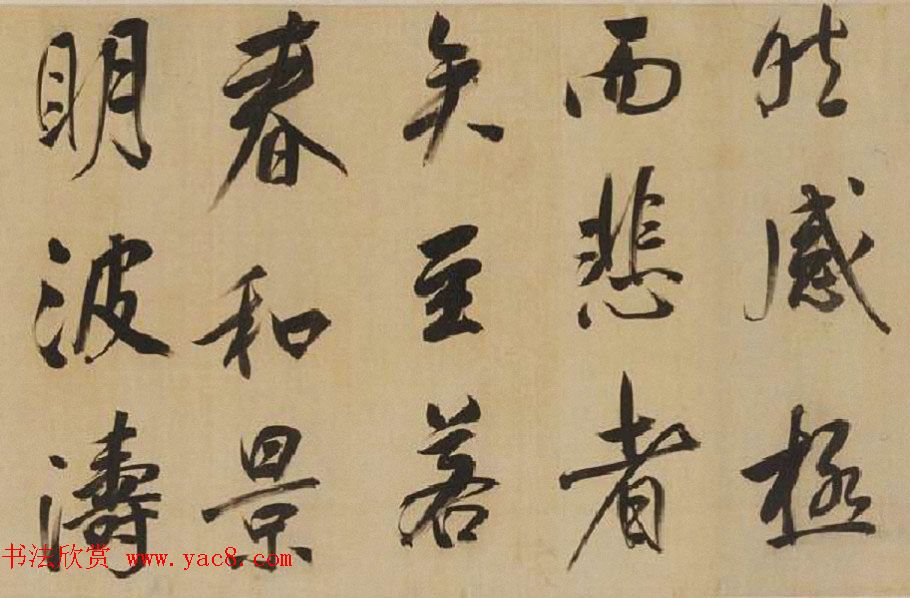 然感極
而悲者
矣至若
春和景
明波濤
书法欣赏 www.yac8.com